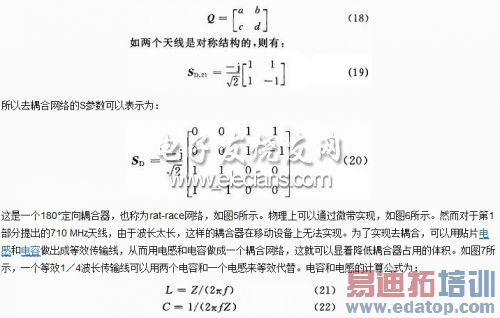 Q = [a b
c d] (18)
如两个天线是对称结构的,则有:
S_D,21 = -j/√2 [1 1
1 -1] (19)
所以去耦合网络的S参数可以表示为:
S_D = -j/√2 [0 0 1 1
0 0 1 -1
1 1 0 0
1 -1 0 0] (20)
电子发烧友网
www.elecfans.com
这是一个180°定向耦合器,也称为rat-race网络,如图5所示。物理上可以通过微带实现,如图6所示。然而对于第1
部分提出的710 MHz天线,由于波长太长,这样的耦合器在移动设备上无法实现。为了实现去耦合,可以用贴片电
感和电容做出成等效传输线,从而用电感和电容做成一个耦合网络,这就可以显着降低耦合器占用的体积。如图7所
示,一个等效1/4波长传输线可以用两个电容和一个电感来等效代替。电容和电感的计算公式为:
L = Z/(2πf) (21)
C = 1/(2πfZ) (22)
易迪拓培训
www.edatop.com